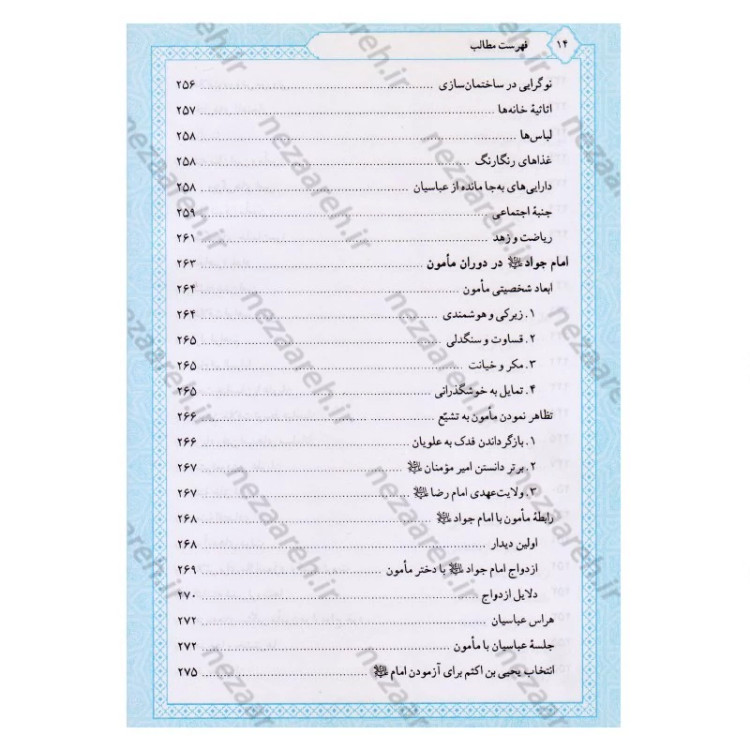 ۱۴ فهرست مطالب
نوگرایی در ساختمان‌سازی ۲۵۶
اثاثیهٔ خانه‌ها ۲۵۷
لباس‌ها ۲۵۸
غذاهای رنگارنگ ۲۵۸
دارایی‌های به‌جا مانده از عباسیان ۲۵۸
جنبهٔ اجتماعی ۲۵۹
ریاضت و زهد ۲۶۱
امام جواد ﷷ در دوران مأمون ۲۶۳
ابعاد شخصیتی مأمون ۲۶۴
۱. زیرکی و هوشمندی ۲۶۴
۲. قساوت و سنگدلی ۲۶۵
۳. مکر و خیانت ۲۶۵
۴. تمایل به خوشگذرانی ۲۶۵
تظاهر نمودن مأمون به تشیّع ۲۶۶
۱. بازگرداندن فدک به علویان ۲۶۶
۲. برتر دانستن امیر مؤمنان ﷷ ۲۶۷
۳. ولایت‌عهدی امام رضا ﷷ ۲۶۷
رابطهٔ مأمون با امام جواد ﷷ ۲۶۸
اولین دیدار ۲۶۸
ازدواج امام جواد ﷷ با دختر مأمون ۲۶۹
دلایل ازدواج ۲۷۰
هراس عباسیان ۲۷۲
جلسهٔ عباسیان با مأمون ۲۷۲
انتخاب یحیی بن اکثم برای آزمودن امام ﷷ ۲۷۵
nezaareh.ir